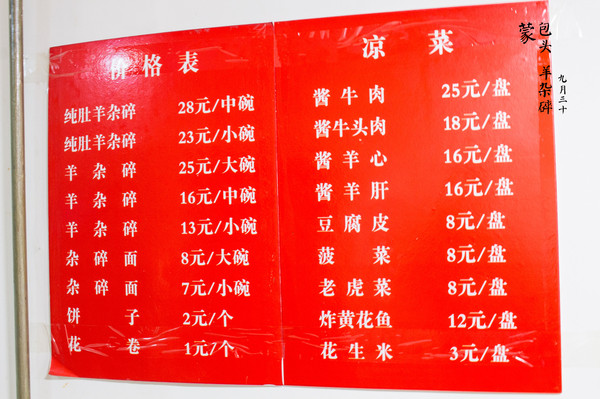 价格表
纯肚羊杂碎 28元/中碗
纯肚羊杂碎 23元/小碗
羊杂碎 25元/大碗
羊杂碎 16元/中碗
羊杂碎 13元/小碗
杂碎面 8元/大碗
杂碎面 7元/小碗
饼子 2元/个
花卷 1元/个
凉菜
酱牛肉 25元/盘
酱牛头肉 18元/盘
酱羊心 16元/盘
酱羊肝 16元/盘
豆腐皮 8元/盘
菠菜 8元/盘
老虎菜 8元/盘
炸黄花鱼 12元/盘
花生米 3元/盘
蒙
包头 羊杂碎
九月三十